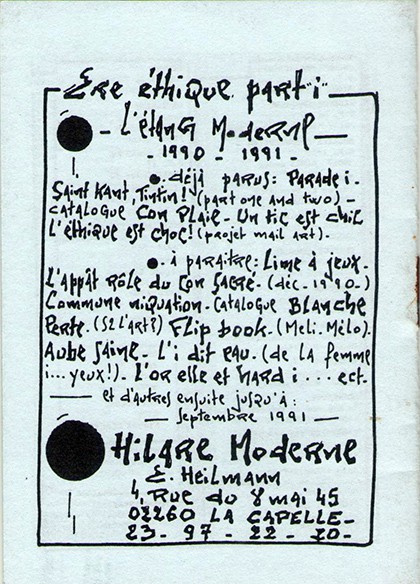 Ère éthique part "i"
L'étang Moderne
- 1990 - 1991 -
. déjà parus: Paradei.
Saint Kant, Tintin! (part one and two) -
catalogue Con Plaie. Un tic est chic
L'éthique est choc! (projet mail art).
. à paraître: Lime à jeux.
L'appât Rôle du Con Sacré. (déc. 1990-)
Commune niquation. Catalogue Blanche
Perte. (S2 L'art?) Flip book. (Meli. Mélo).
Aube Saine. L'i dit eau. (de la femme
i... yeux!). L'or elle et hard i... ect.
et d'autres ensuite jusqu'à:
- septembre 1991 -
Hilare Moderne
E. Heilmann
4, Rue du 8 mai 45
02260 LA CAPELLE -
23 - 97 - 22 - 20 -